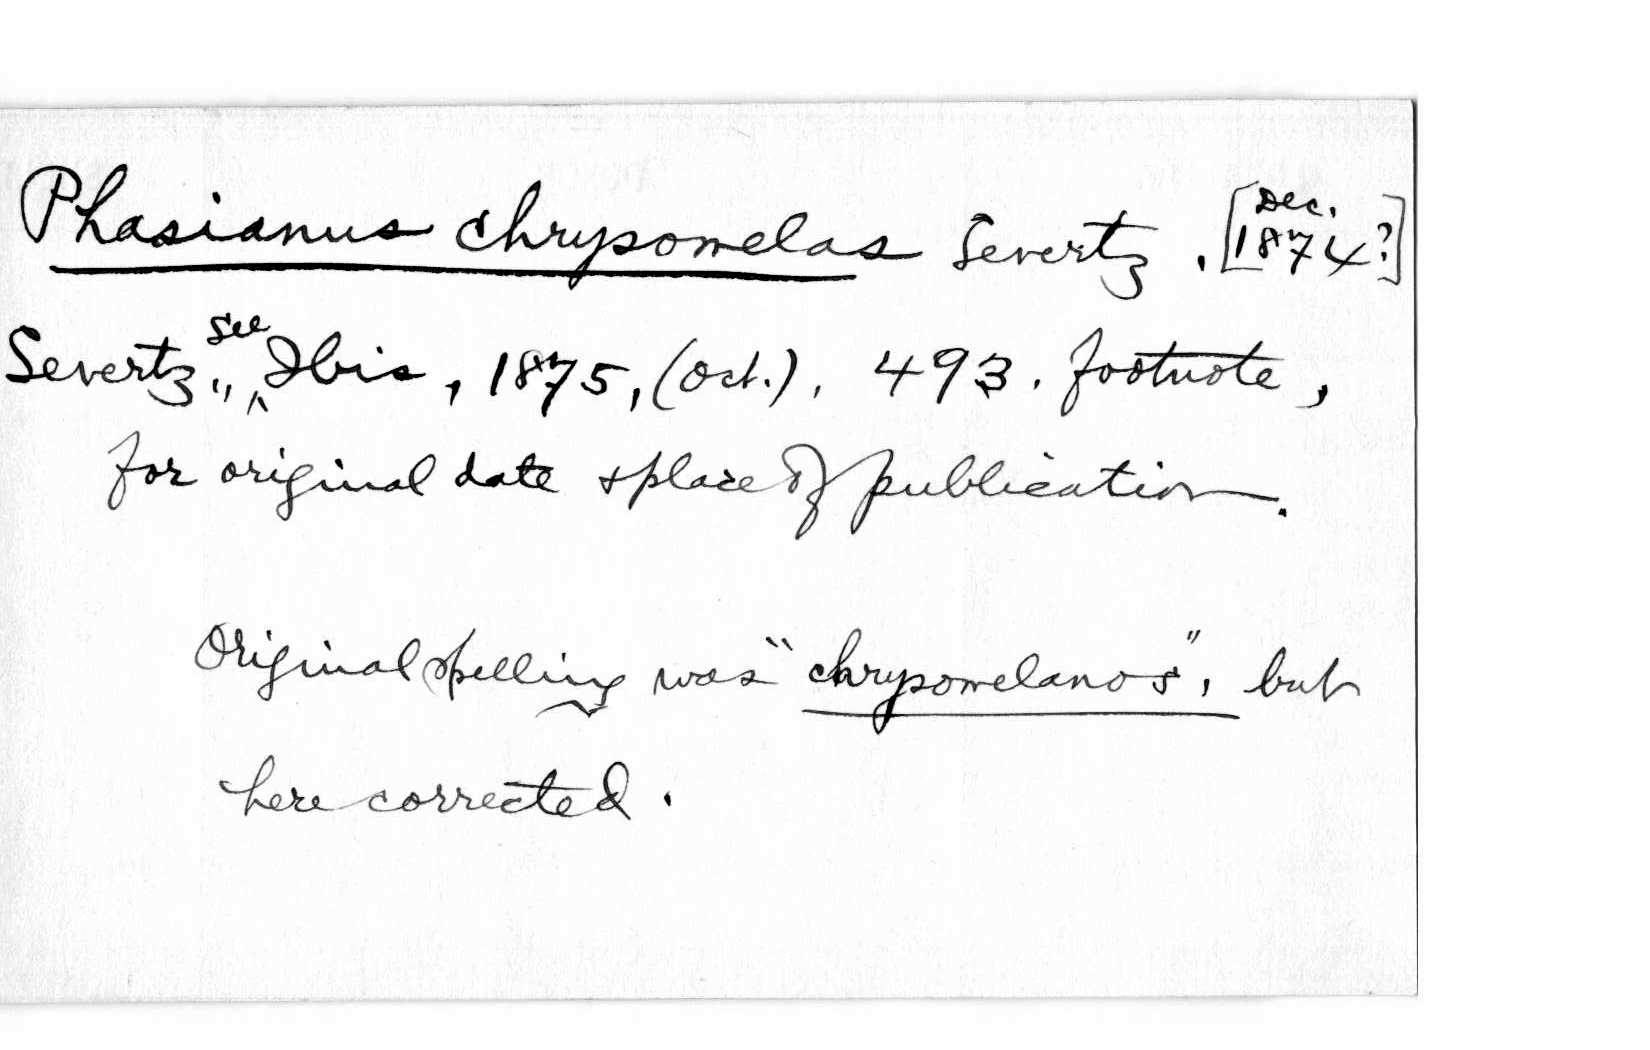 Phasianus chrysomelas Severtz. [Dec. 1874?]
Severtz., see Ibis, 1875, (Oct.), 493. footnote,
for original date & place of publication.
Original spelling was "chrysomelanos", but
here corrected.